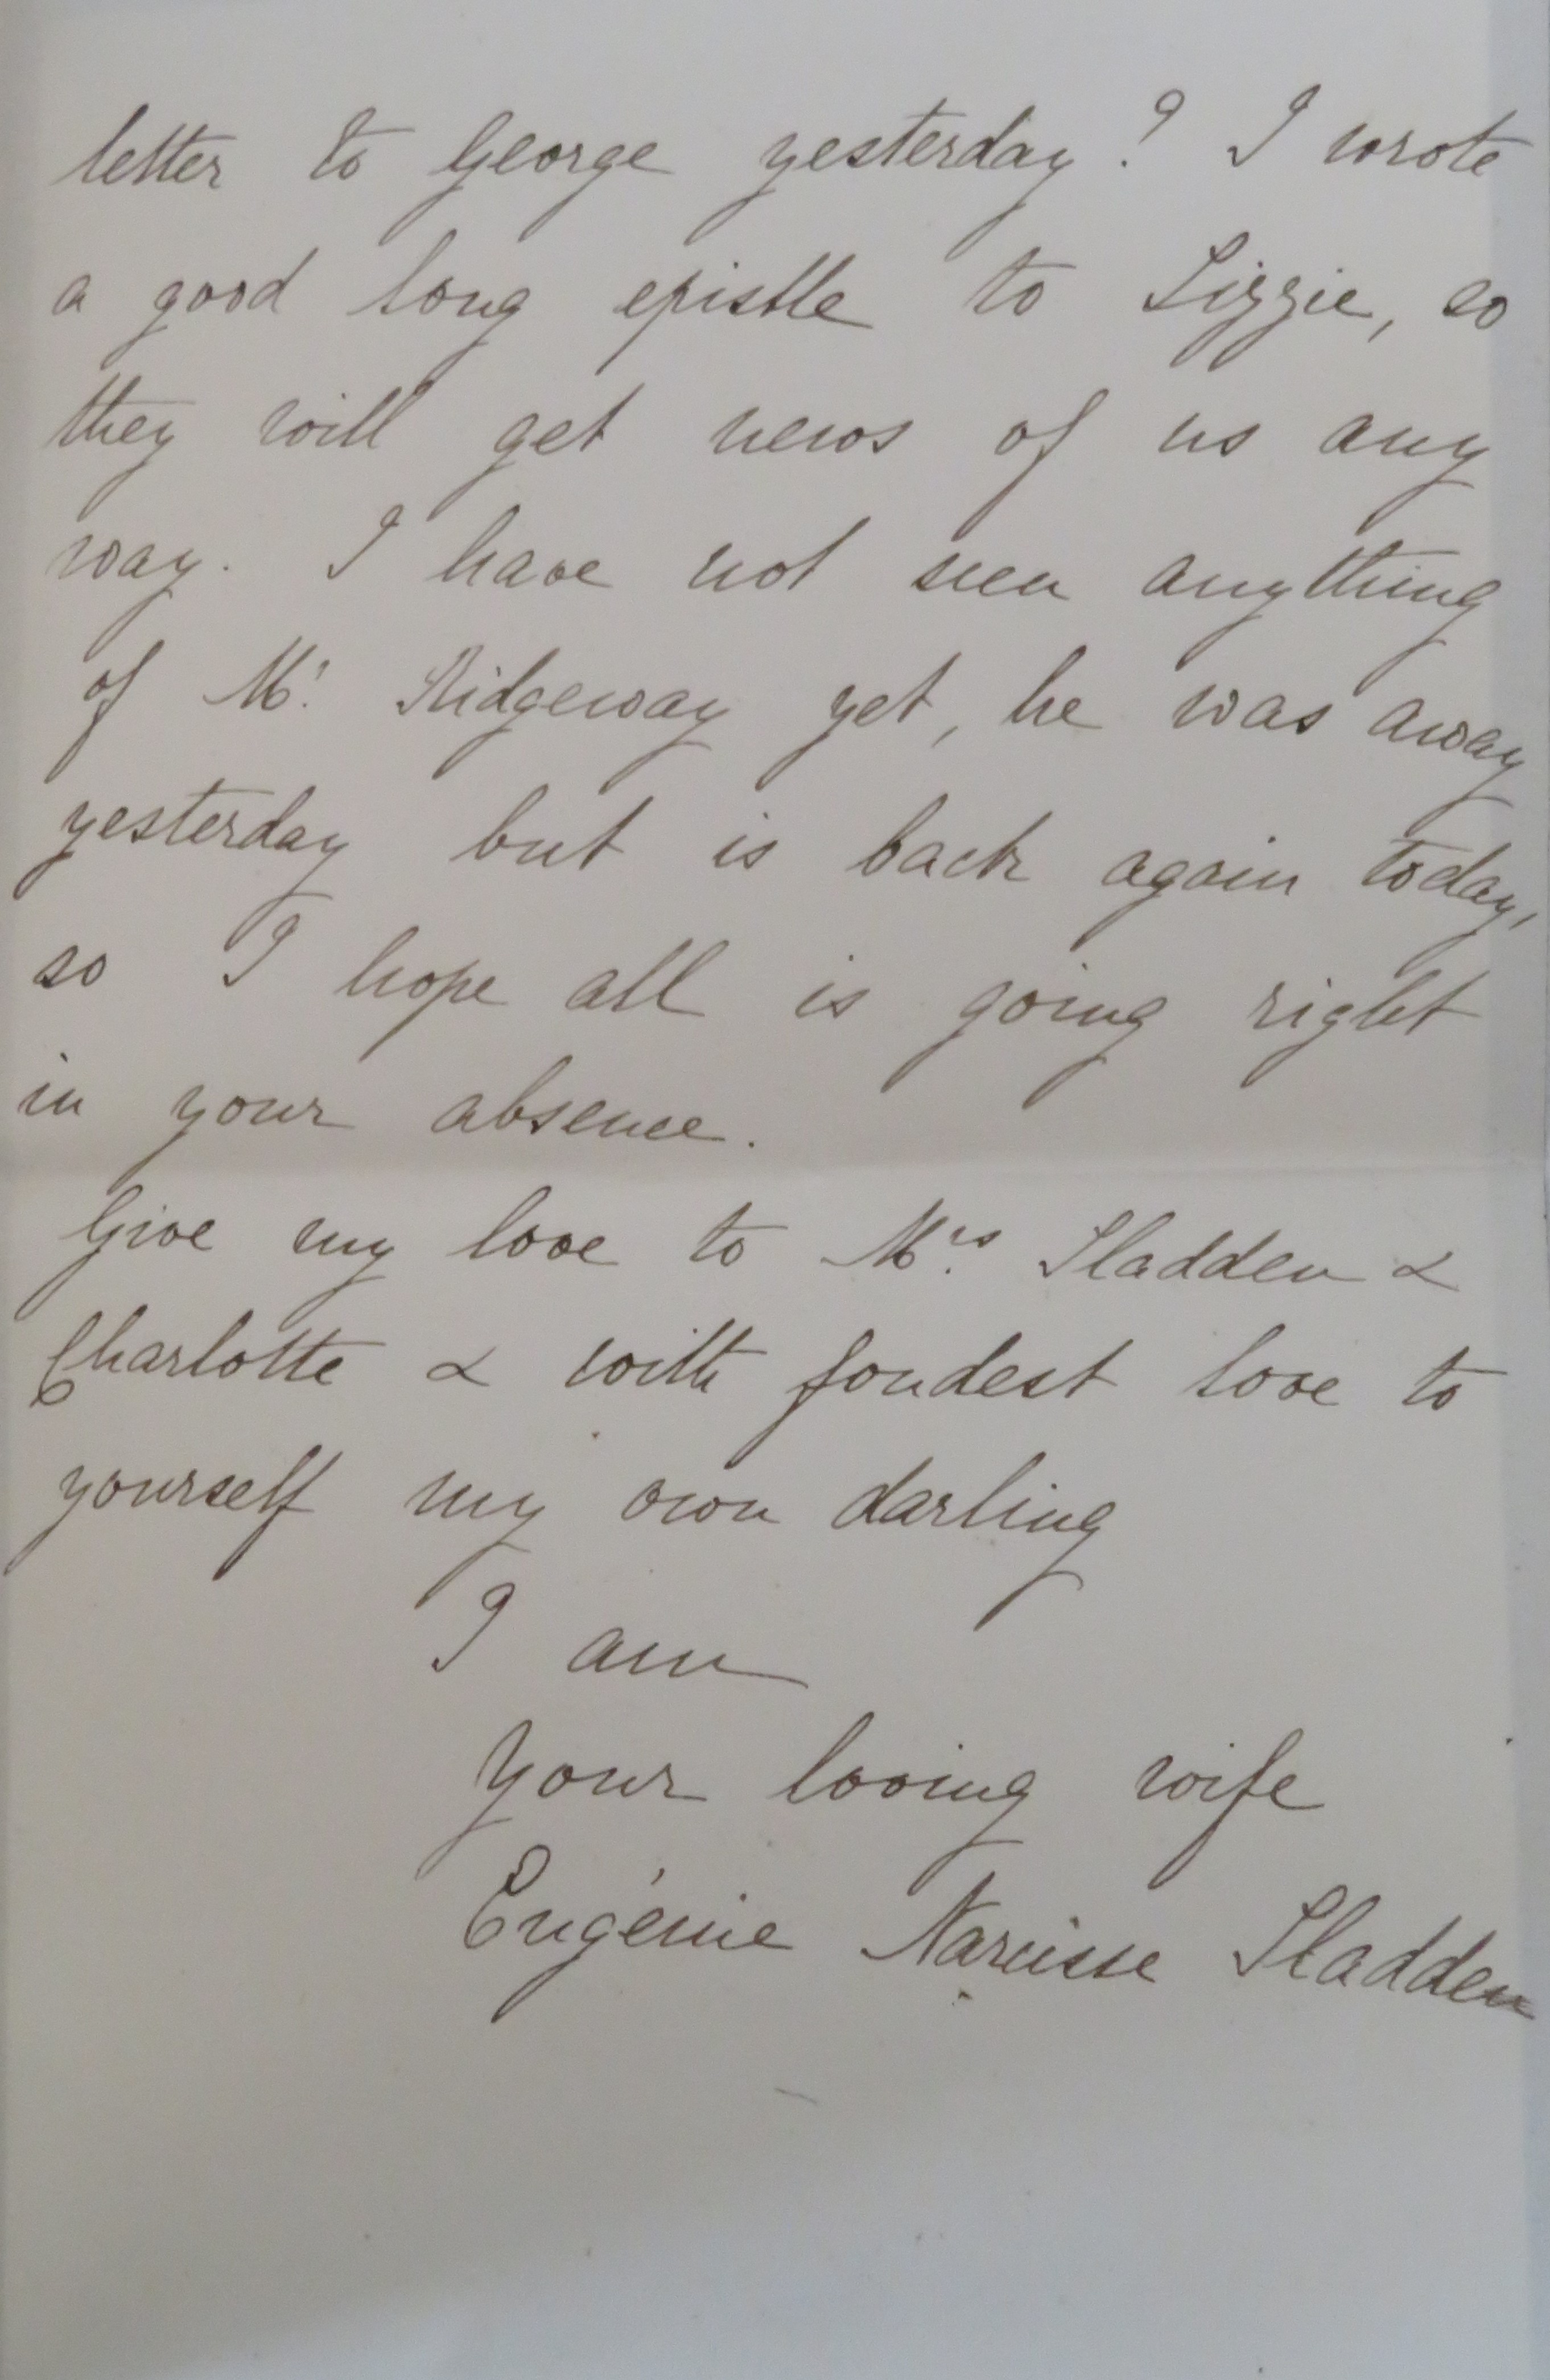 letter to George yesterday? I wrote
a good long epistle to Lizzie, so
they will get news of us any
way. I have not seen anything
of Mr. Ridgeway yet, he was away
yesterday but is back again today,
so I hope all is going right
in your absence.
Give my love to Mrs. Sladden &
Charlotte & with fondest love to
yourself my own darling
I am
Your loving wife
Eugénie Narcisse Sladden